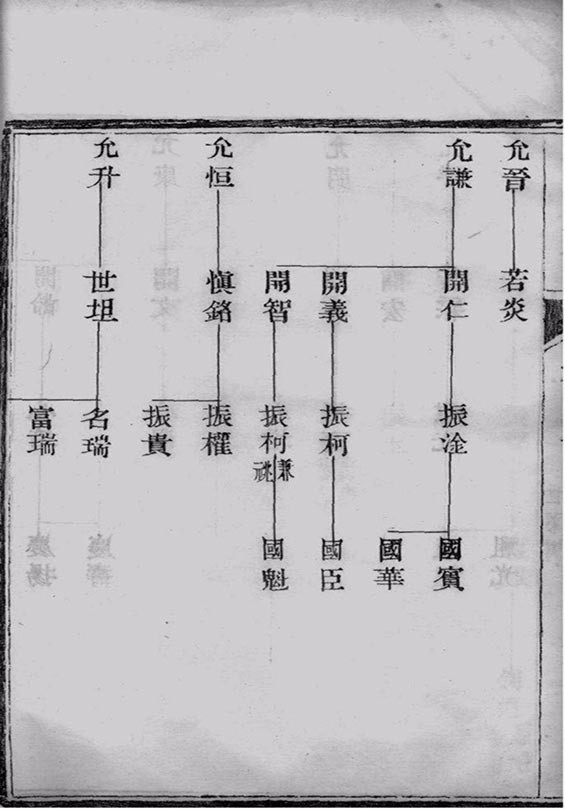 允晉
允謙
允恒
允升
若炎
開仁
開義
開智
慎銘
世坦
振淦
振柯
振柯 兼祧
振權
振貴
名瑞
富瑞
國賓
國華
國臣
國魁